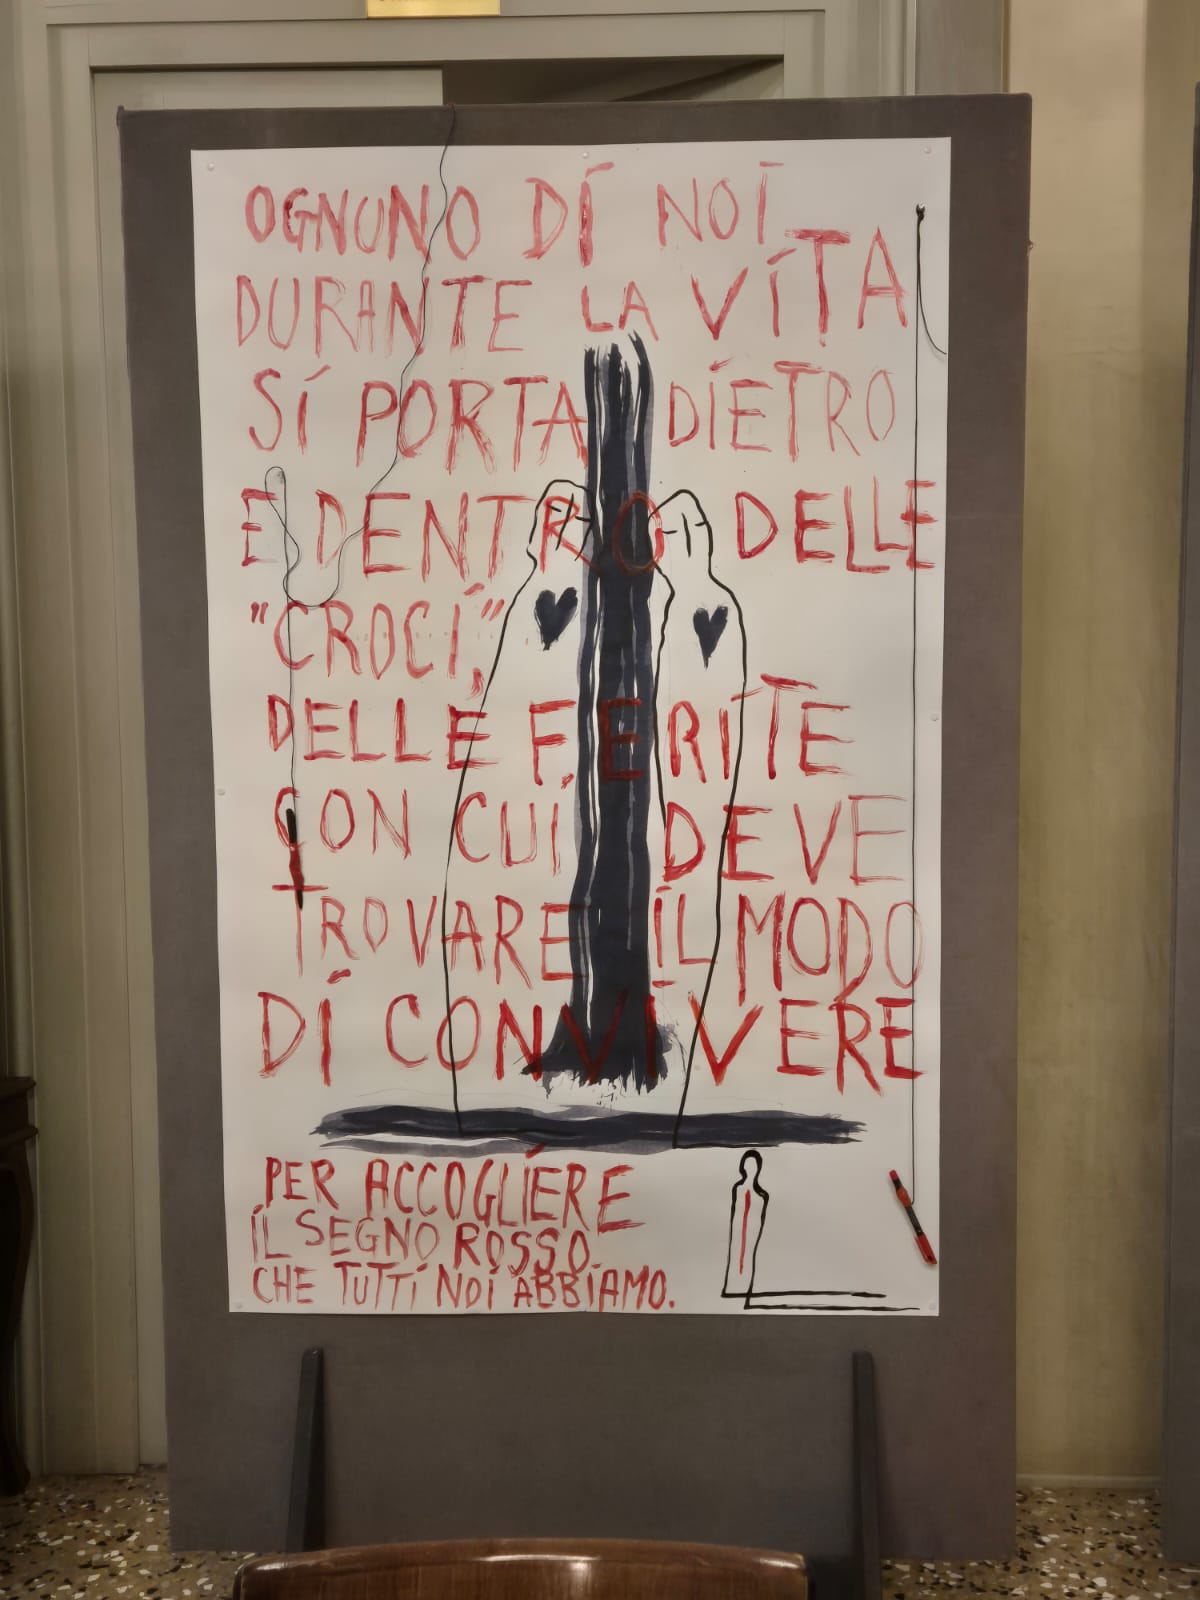 OGNUNO DI NOI
DURANTE LA VITA
SI PORTA DIETRO
E DENTRO DELLE
"CROCI,"
DELLE FERITE
CON CUI DEVE
TROVARE IL MODO
DI CONVIVERE
PER ACCOGLIERE
IL SEGNO ROSSO
CHE TUTTI NOI ABBIAMO.